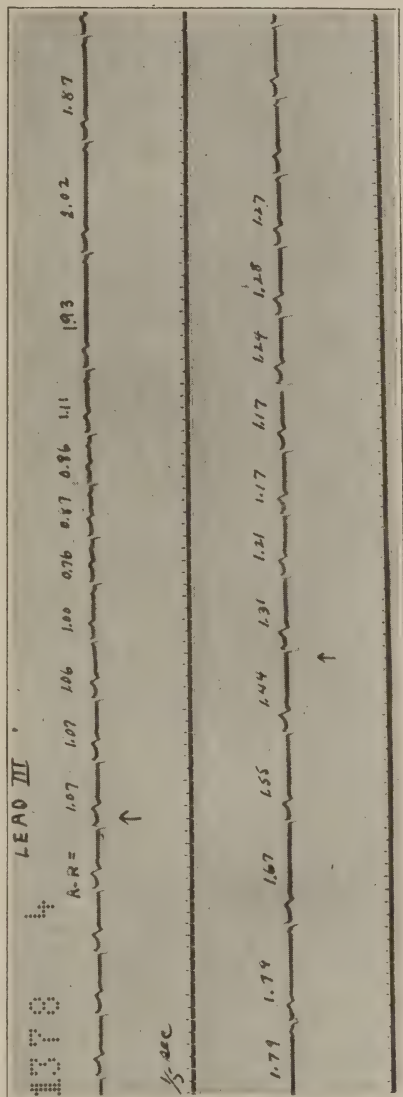 1378 4
LEAD III
R-R = 1.07 1.07 1.06 1.00 0.76 0.87 0.86 1.11 1.93 2.02 1.87
↑
1/5 sec
1.79 1.79 1.67 1.55 1.44 1.31 1.21 1.17 1.17 1.24 1.28 1.27
↑